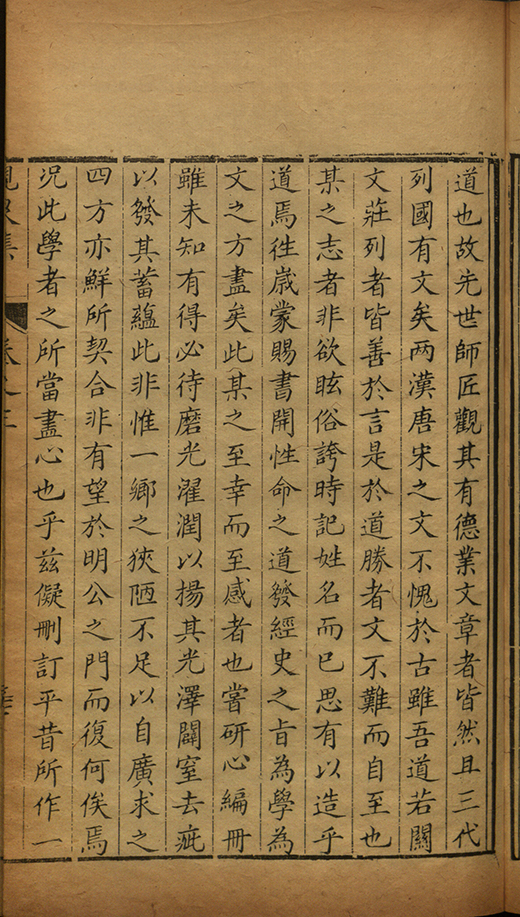 道也故先世師匠觀其有德業文章者皆然且三代
列國有文矣两漢唐宋之文不愧於古雖吾道若關
文莊列者皆善於言是於道勝者文不難而自至也
某之志者非欲眩俗誇時記姓名而已思有以造乎
道焉徃歲蒙賜書開性命之道發經史之旨為學為
文之方盡矣此某之至幸而至感者也嘗研心編冊
雖未知有得必待磨光濯潤以揚其光澤闢室去疵
以發其蓄蘊此非惟一鄉之狹陋不足以自廣求之
四方亦鮮所契合非有望於明公之門而復何俟焉
况此學者之所當盡心也乎兹儗刪訂平昔所作一